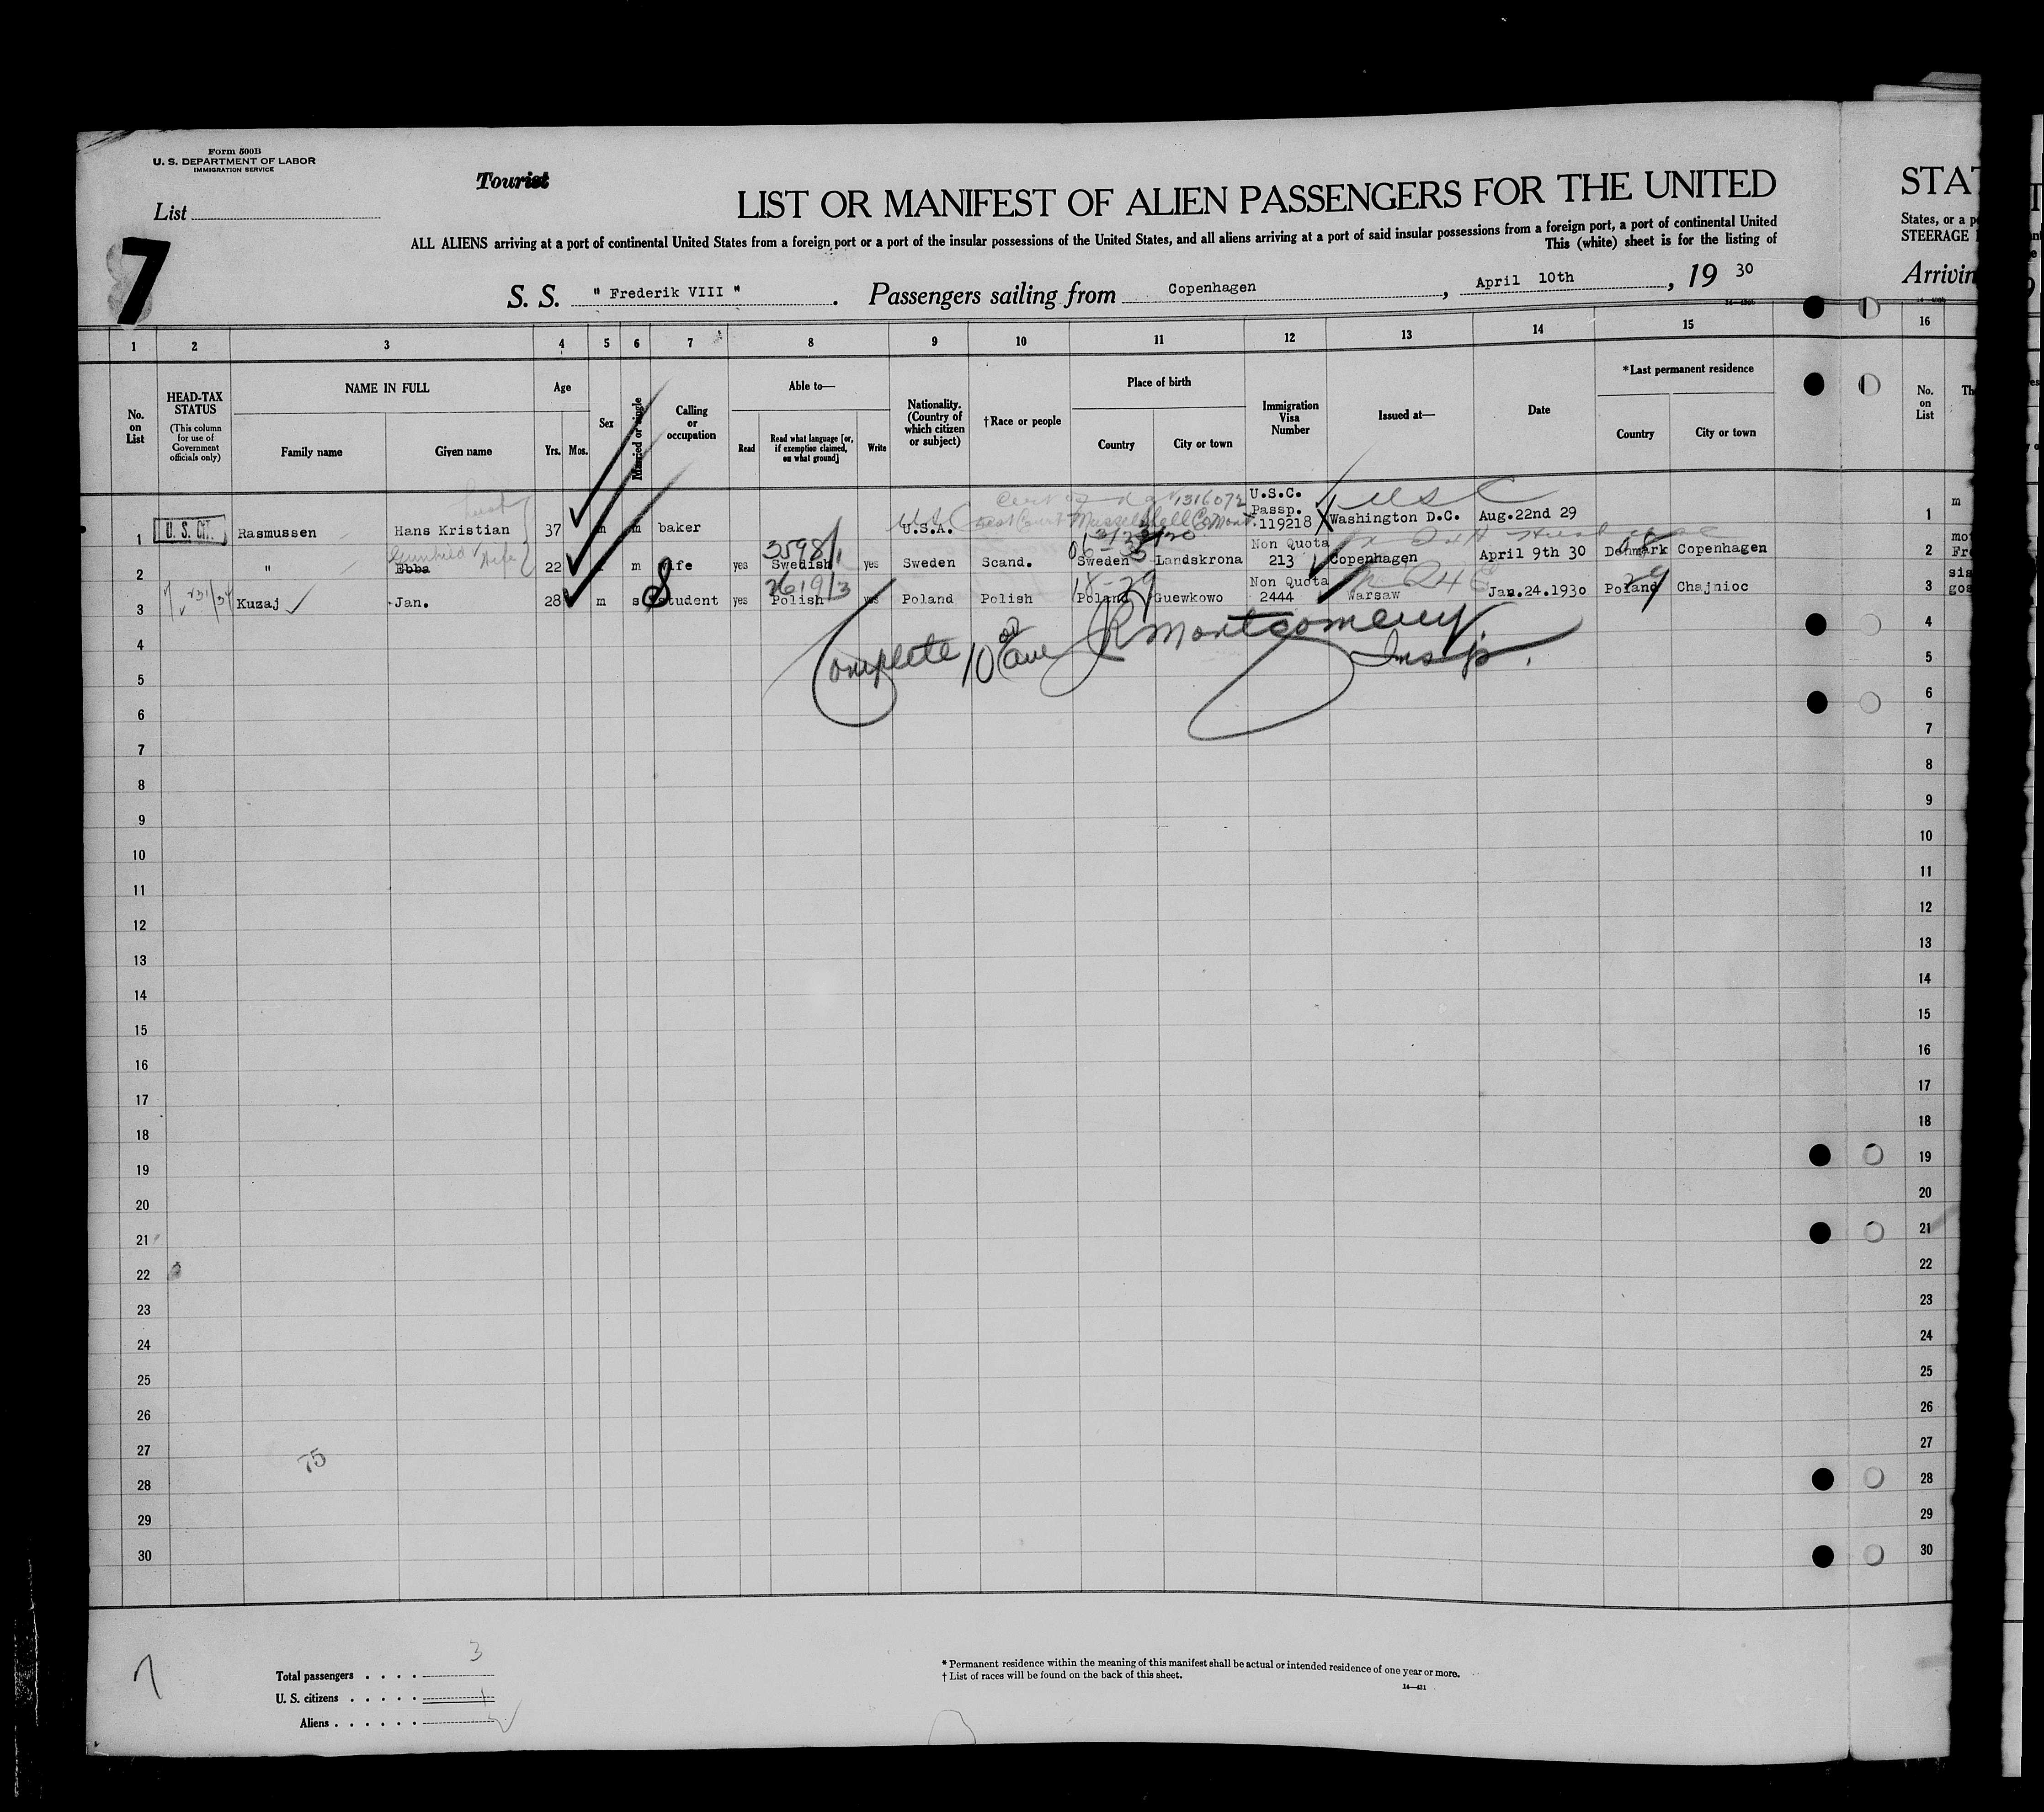 Form 500B
U. S. DEPARTMENT OF LABOR
IMMIGRATION SERVICE
Tourist
List
7
LIST OR MANIFEST OF ALIEN PASSENGERS FOR THE UNITED
ALL ALIENS arriving at a port of continental United States from a foreign port or a port of the insular possessions of the United States, and all aliens arriving at a port of said insular possessions from a foreign port, a port of continental United
This (white) sheet is for the listing of
S. S. " Frederik VIII " . Passengers sailing from Copenhagen , April 10th , 19 30
STA
States, or a p
STEERAGE
Arrivin
1 2 3 4 5 6 7 8 9 10 11 12 13 14 15 16
No. on List
HEAD-TAX STATUS
(This column for use of Government officials only)
NAME IN FULL
Family name Given name
Age
Yrs. Mos.
Sex
Married or single
Calling or occupation
Able to—
Read
Read what language [or, if exemption claimed, on what ground]
Write
Nationality. (Country of which citizen or subject)
†Race or people
Place of birth
Country City or town
Immigration Visa Number
Issued at—
Date
*Last permanent residence
Country City or town
No. on List
Th
1 U. S. CIT. Rasmussen Hans Kristian 37 m m baker U.S.A. 1316072 U.S.C. Passp. 119218 Washington D.C. Aug.22nd 29 1 m
2 " Gunhild Ebba Wife 22 m wife yes Swedish yes Sweden Scand. Sweden Landskrona Non Quota 213 Copenhagen April 9th 30 Denmark Copenhagen 2 mot Fre
3598/1
3 Kuzaj Jan. 28 m s student yes Polish yes Poland Polish Poland Guewkowo Non Quota 2444 Warsaw Jan.24.1930 Poland Chajnioc 3 sis gos
2619/3
Complete 10 JR Montgomery
Insp.
4 4
5 5
6 6
7 7
8 8
9 9
10 10
11 11
12 12
13 13
14 14
15 15
16 16
17 17
18 18
19 19
20 20
21 21
22 22
23 23
24 24
25 25
26 26
27 27
75
28 28
29 29
30 30
7
Total passengers . . . . 3
U. S. citizens . . . . . 1
Aliens . . . . . . 2
* Permanent residence within the meaning of this manifest shall be actual or intended residence of one year or more.
† List of races will be found on the back of this sheet.
14—421